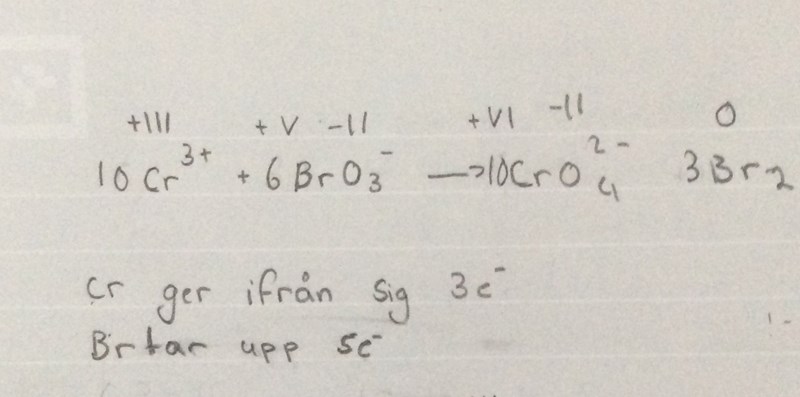 +III +V -II +VI -II 0
10 Cr³⁺ + 6 BrO₃⁻ → 10CrO₄²⁻ 3Br₂
Cr ger ifrån sig 3e⁻
Br tar upp 5e⁻